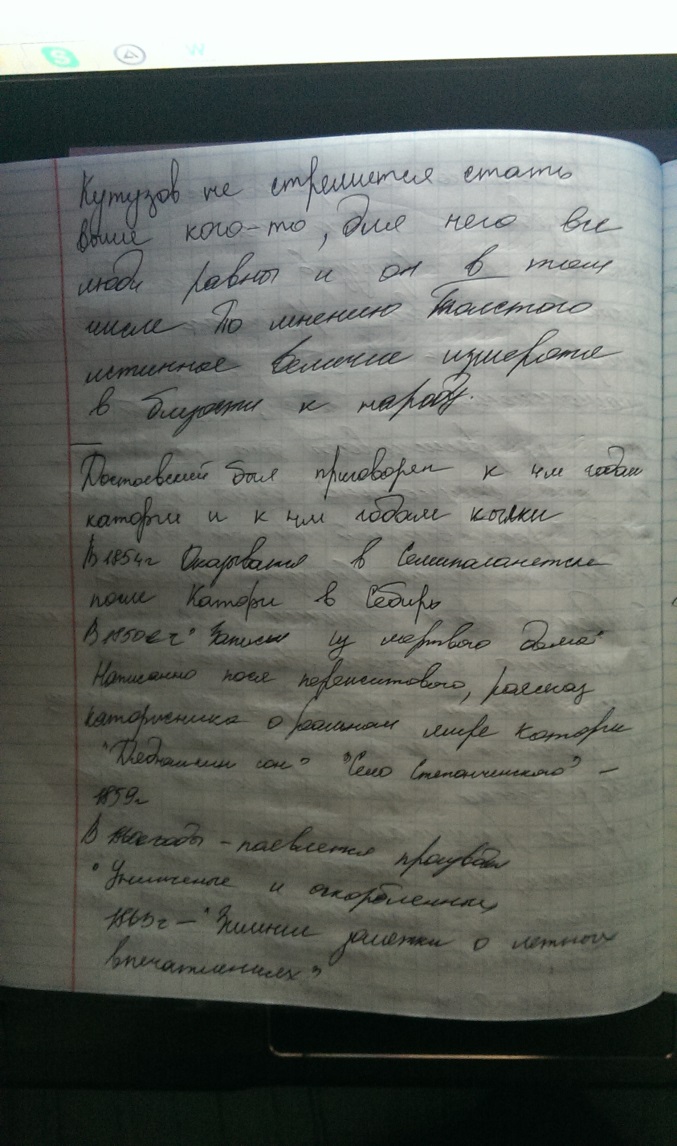 S W
Кутузов не стремится стать
выше кого-то, для него все
люди равны и он в том
числе По мнению Толстого
истинное величие
в близости к народу.
Достоевский был приговорен к 4м годам
каторги и к 4м годам
В 1854г в Семипалатинске
после Каторги в
"Записки из мертвого дома"
после рассказ
каторжника о реальном мире каторги
"Дядюшкин сон" "Село Степанчиского" –
1859г
В годы –
"Униженые и оскорбленных
1863г – "Зимние заметки о летных
впечатлениях"